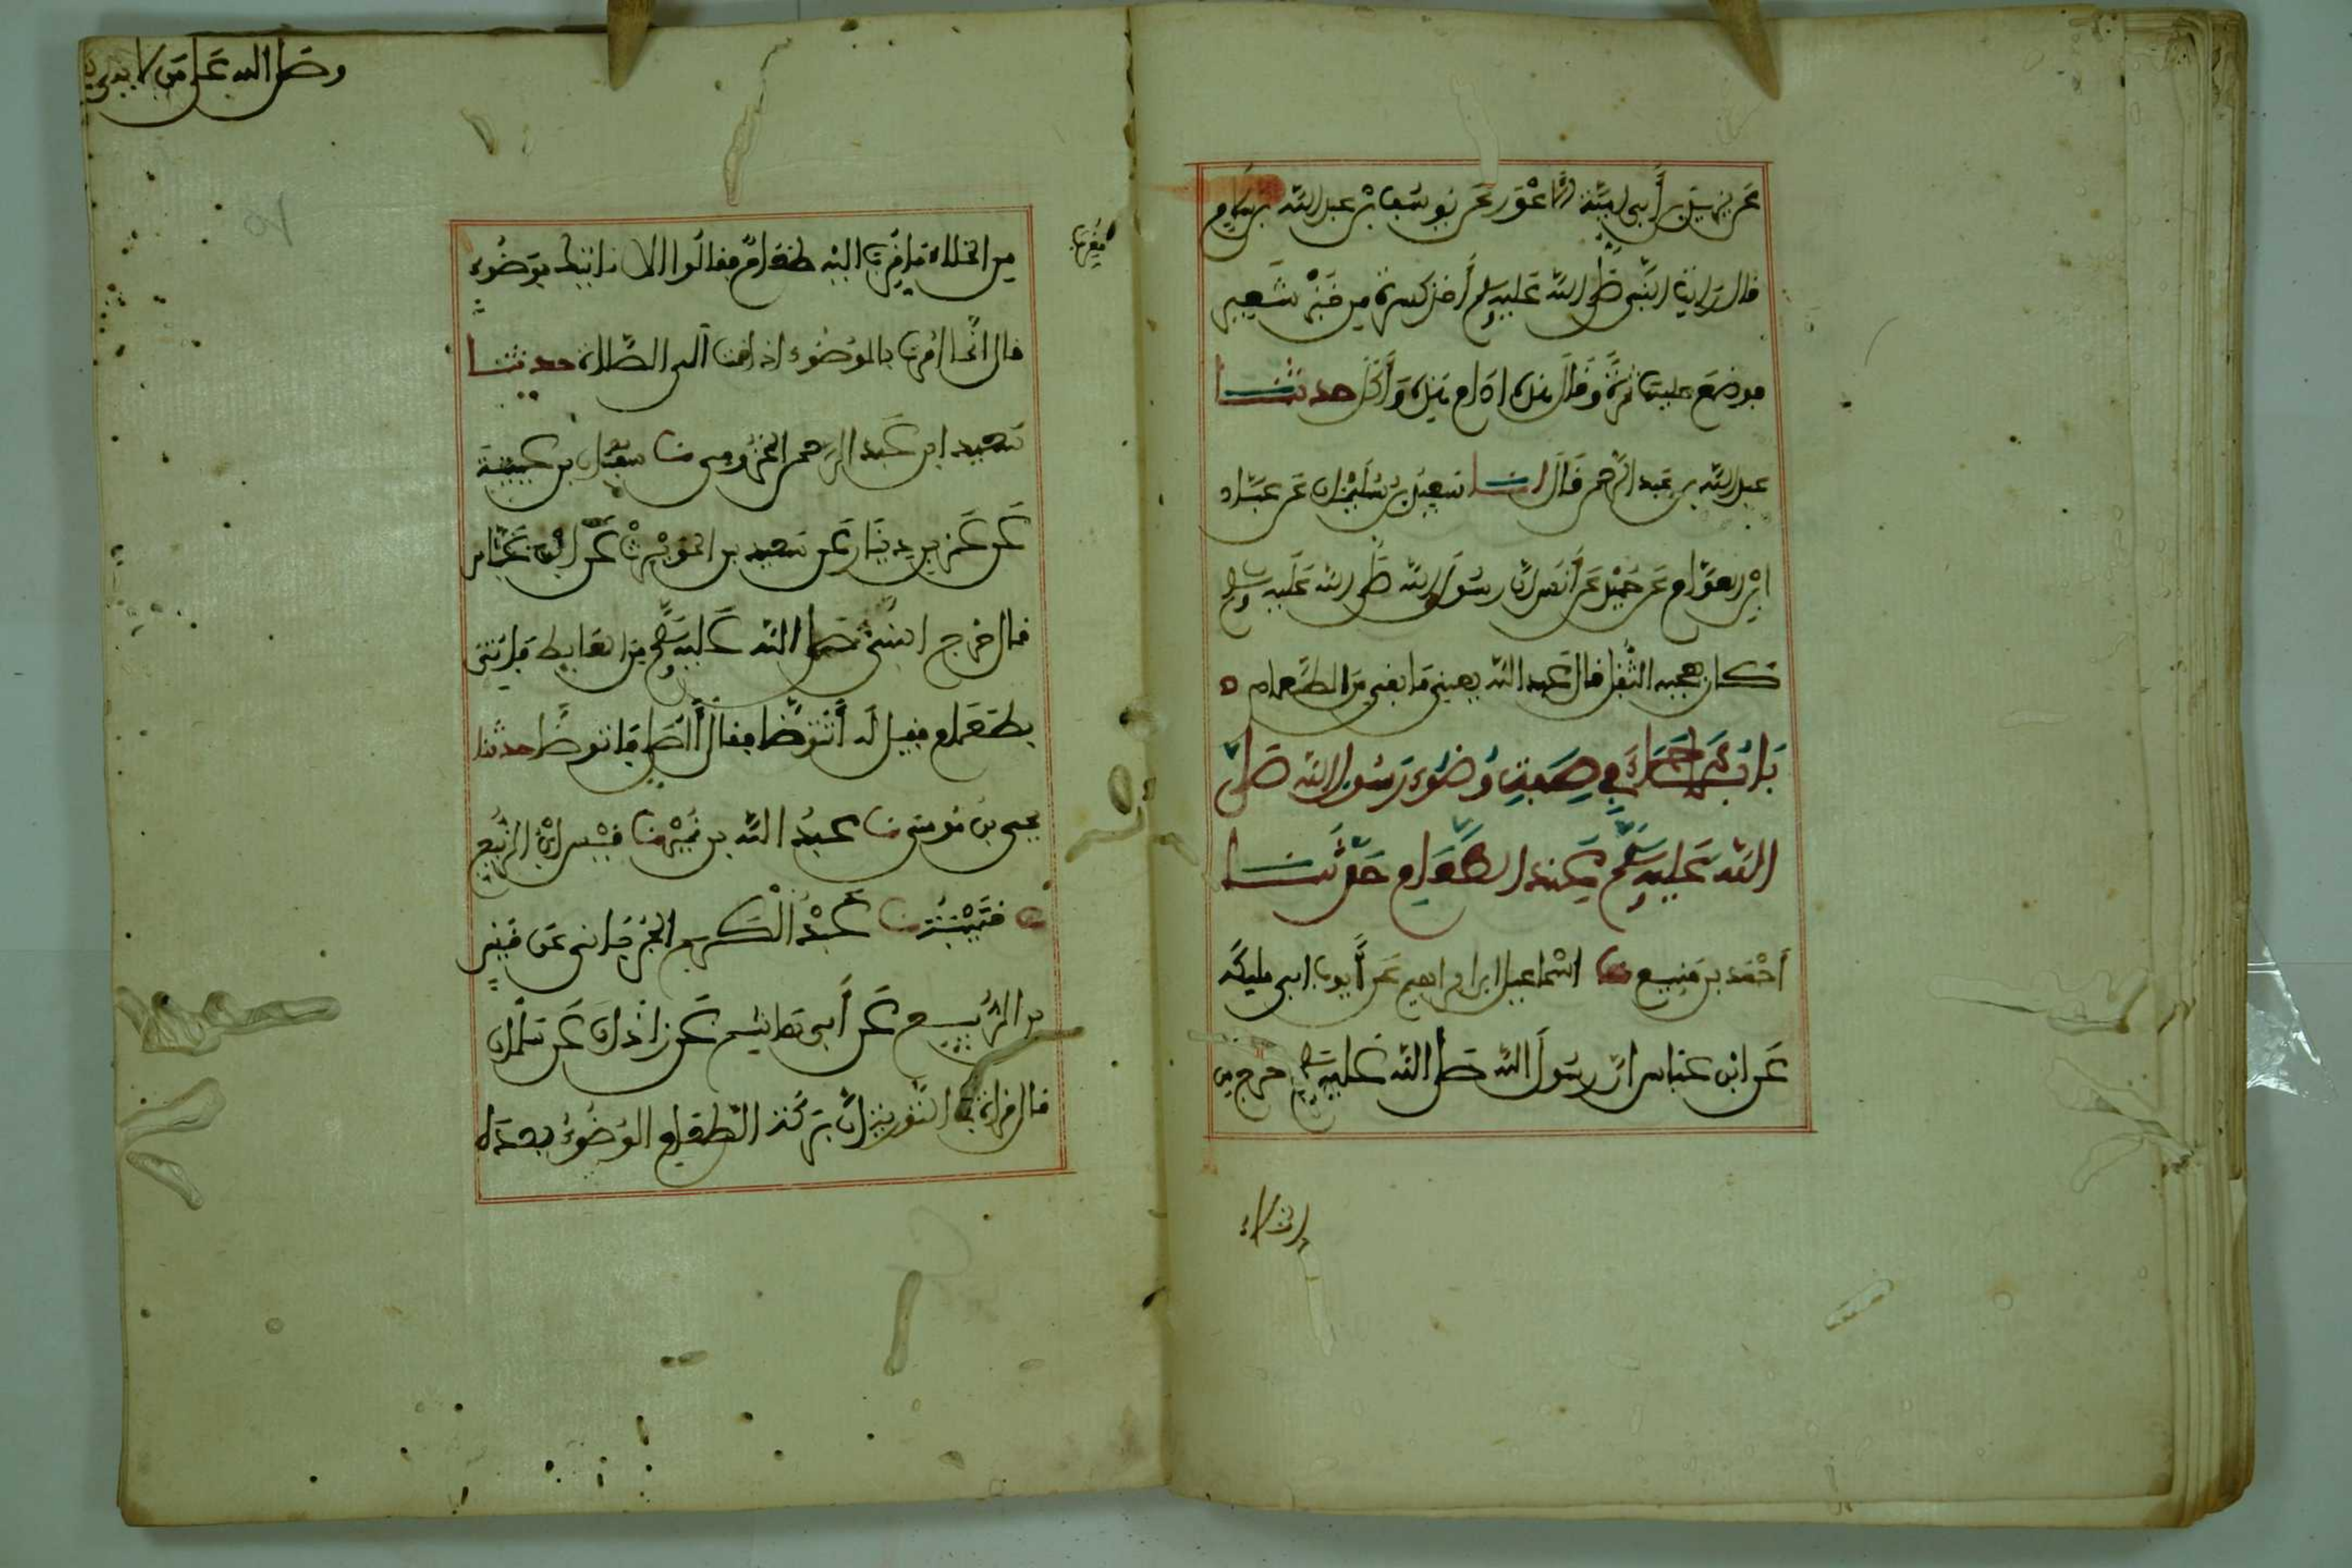 عن يزيد بن أبي أمية الأعور عن يوسف بن عبد الله بن سلام
قال رأيت النبي صلى الله عليه وسلم أخذ كسرة من خبز شعير
فوضع عليها تمرة وقال هذه ادام هذه وأكل حدثنا
عبد الله بن عبد الرحمن قال انا سعيد بن سليمان عن عباد
ابن العوام عن حميد عن أنس ان رسول الله صلى الله عليه وسلم
كان يعجبه الثفل قال عبد الله يعني ما بقي من الطعام ه
باب ما جاء في صفة وضوء رسول الله صلى
الله عليه وسلم عند الطعام حدثنا
أحمد بن منيع نا اسماعيل ابن ابراهيم عن أيوب ابي مليكة
عن ابن عباس ان رسول الله صلى الله عليه وسلم خرج من
الخلاء
وصلى الله على من لا نبي
فقرب
من الخلاء فقرب اليه طعام فقالوا الا ناتيك بوضوء
قال انما امرت بالوضوء اذا قمت الى الصلاة حدثنا
سعيد ابن عبد الرحمن المخزومي نا سفيان بن عيينة
عن عمرو بن دينار عن سعيد بن الحويرث عن ابن عباس
قال خرج النبي صلى الله عليه وسلم من الغايط فاتي
بطعام فقيل له أتتوضا فقال أأصلي فاتوضأ حدثنا
يحيى بن موسى نا عبد الله بن نمير نا قيس ابن الربيع
ح قتيبة نا عبد الكريم الجرجاني عن قيس
بن الربيع عن أبي هاشم عن زاذان عن سلمان
قال قرات في التورية ان بركة الطعام الوضوء بعده